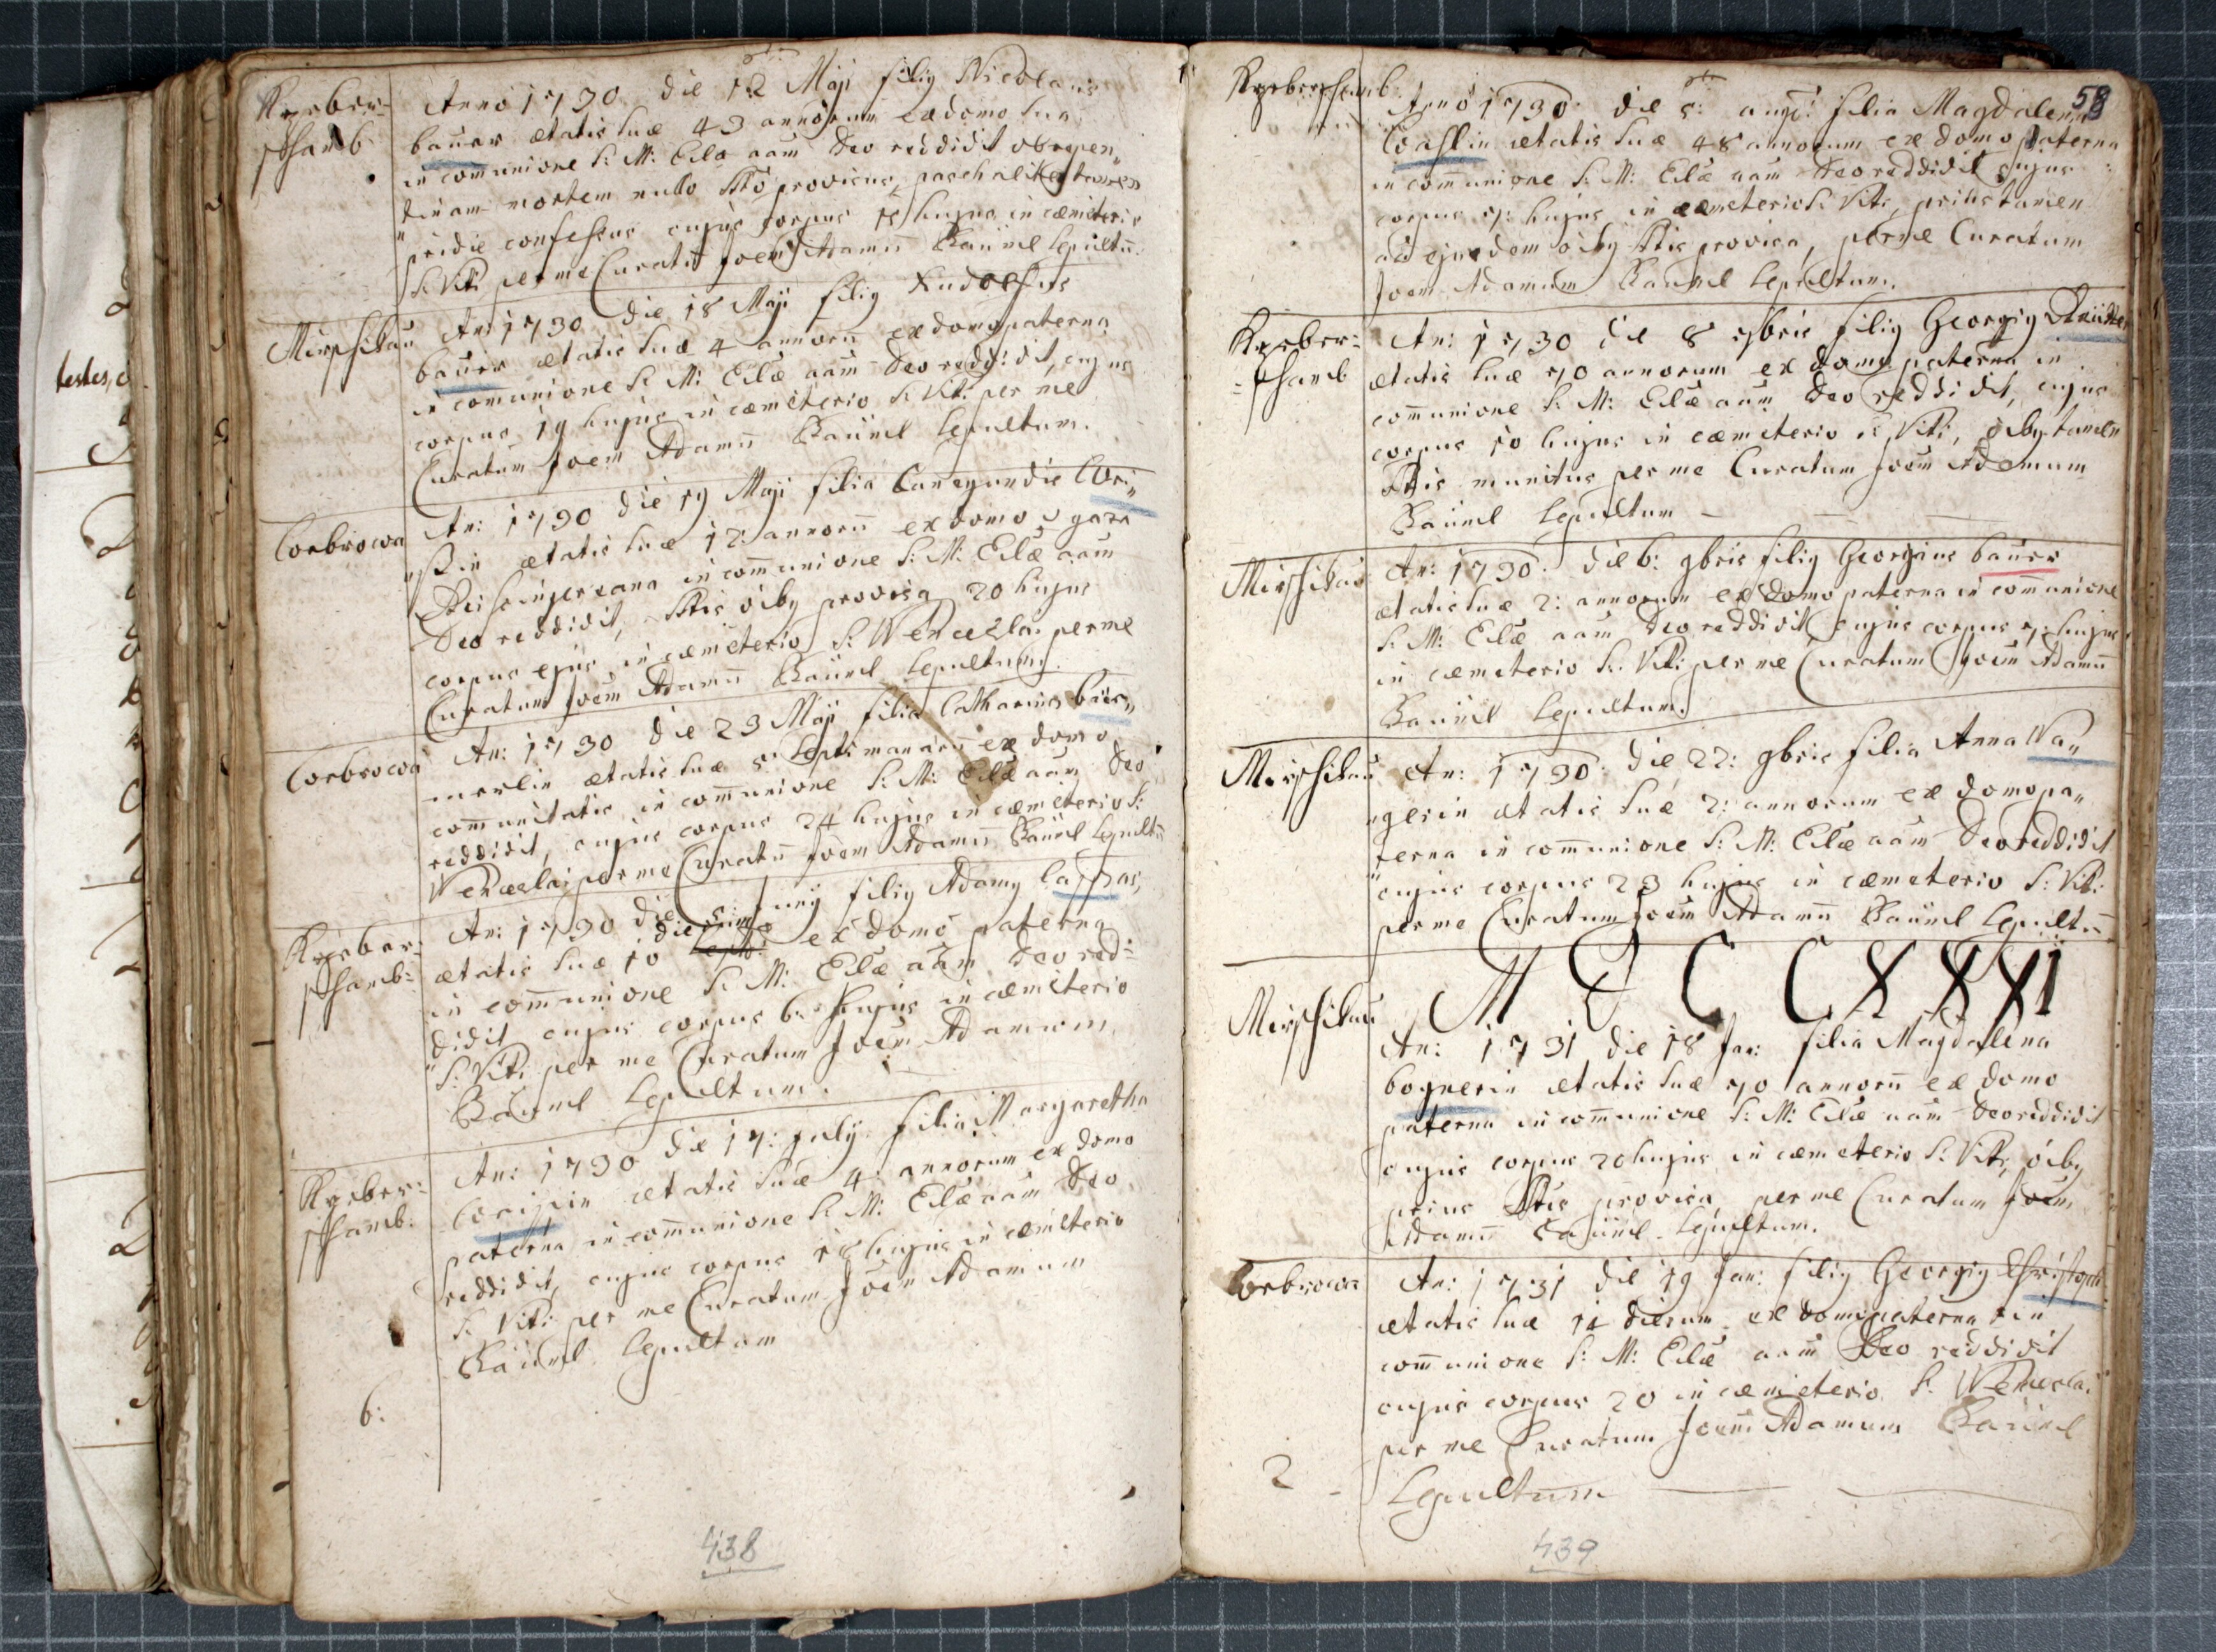 testes,
Kyrber-
schamb
Anno 1730 die 12 Maji filig Nicolaus
bauer ætatis suæ 43 annorum ex domo sua
in communione S: M: Eclæ aām Deo reddidit
mortem nullo provisus, paschaliter tamen
pridie confessus cujus corpus 15 hujus in cæmeterio
S: Viti per me Curatū Joem Adamū Bäuml sepultū.
Mirschikau
An: 1730 die 18 Maji filig Rudolfus
bauer ætatis suæ 4 annorū ex domo paterna
in comunione S: M: Eclæ aām Deo reddidit, cujus
corpus 19 hujus in cæmeterio S: Viti per me
Curatum Joem Adamū Bäuml sepultum.
Worbrowa
An: 1730 die 19 Maji filia Cunegundis
ætatis suæ 12 annorū ex domo
in communione S: M: Eclæ aām
Deo reddidit, Stis oiby provisa 20 hujus
corpus ejus in cæmeterio S: Wenceslai per me
Curatum Joem Adamū Bäuml sepultum.
Worbrowa
An: 1730 die 23 Maji filia Catharina
ætatis suæ 5 septimanarū ex domo
communitatis in communione S: M: Eclæ aām Deo
reddidit, cujus corpus 24 hujus in cæmeterio S:
Wenceslai per me Curatū Joem Adamū Bäuml sepultū
Kyrber-
schamb:
An: 1730 die 5: Junij filig Adamg
ætatis suæ 10 dierum ex domo paterna
in communione S: M: Eclæ aām Deo red-
didit cujus corpus 6: hujus in cæmeterio
S: Viti per me Curatum Joem Adamum
Bäuml sepultum.
Kyrber-
schamb:
An: 1730 die 17: Julij filia Margaretha
ætatis suæ 4: annorum ex domo
paterna in communione S: M: Eclæ aām Deo
reddidit, cujus corpus 18 hujus in cæmeterio
S: Viti per me Curatum Joem Adamum
Bäuml sepultum
6:
438
58
Kyrberschamb
Anno 1730 die 5: augti filia Magdalena
ætatis suæ 48 annorum ex domo paterna
in communione S: M: Eclæ aām Deo reddidit cujus
corpus 7: hujus in cæmeterio S: Viti, prius tamen
oiby Stis provisa, per me Curatum
Joem Adamum Bäuml sepultum.
Kyrber-
-schamb
An: 1730 die 8 7bris filig Georgig
ætatis suæ 70 annorum ex domo paterna in
communione S: M: Eclæ aām Deo reddidit, cujus
corpus 10 hujus in cæmeterio S: Viti, oiby tamen
Stis munitus per me Curatum Joem Adamum
Bäuml sepultum
Mirschikau
An: 1730. die 6: 9bris filig Georgius bauer
ætatis suæ 2: annorum ex domo paterna in communione
S: M: Eclæ aām Deo reddidit cujus corpus 7: hujus
in cæmeterio S: Viti per me Curatum Joem Adamū
Bäuml sepultum.
Mirschikau
An: 1730. die 22: 9bris filia Anna Wa„
„gerin ætatis suæ 2: annorum ex domo pa„
terna in communione S: M: Eclæ aām Deo reddidit
cujus corpus 23 hujus in cæmeterio S: Viti
per me Curatum Joem Adamū Bäuml sepultū
MDCCXXXI
Mirschikau
An: 1731 die 18 Jan: filia Magdalena
bognerin ætatis suæ 70 annorū ex domo
paterna in communione S: M: Eclæ aām Deo reddidit
cujus corpus 20 hujus in cæmeterio S: Viti, oiby
prius Stis provisa per me Curatum Joem
Adamū Bäuml sepultum.
Worbrowa
An: 1731 die 19 Jan: filig Georgig Christoph
ætatis suæ dierum ex domo paterna in
communione S: M: Eclæ aām Deo reddidit
cujus corpus 20 in cæmeterio S: Wenceslai
per me Curatum Joem Adamum Bäuml
sepultum
2
439